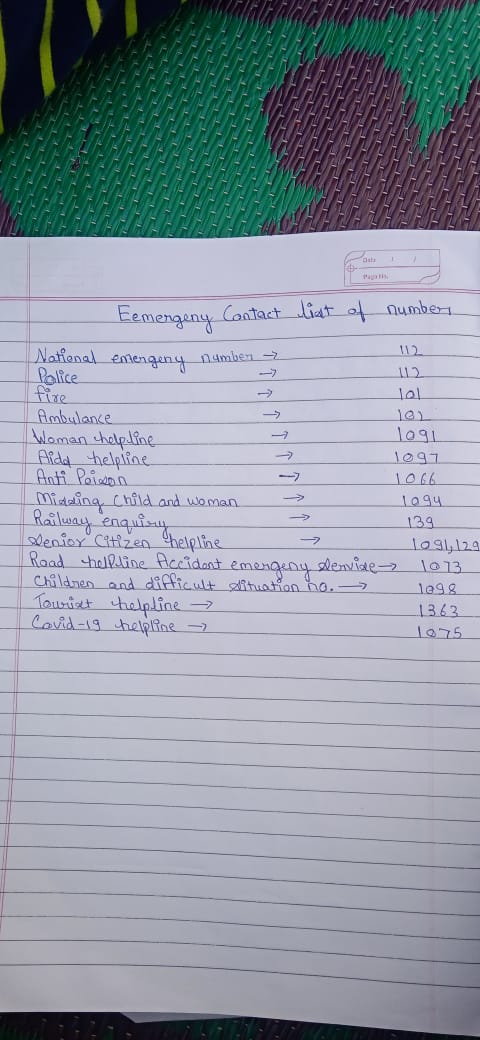 Date / /
Page No.
Eemergeny Contact list of number
National emergeny number → 112
Police → 112
fire → 101
Ambulance → 102
Woman helpline → 1091
Aids helpline → 1097
Anti Poison → 1066
Missing Child and woman → 1094
Railway enquiry → 139
Senior Citizen helpline → 1091,129
Road helpline Accidant emergeny servise → 1073
Children and difficult situation no. → 1098
Tourist helpline → 1363
Covid-19 helpline → 1075